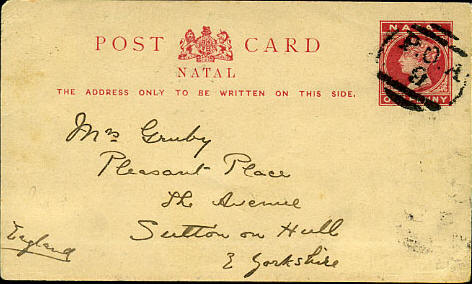 POST CARD
NATAL
THE ADDRESS ONLY TO BE WRITTEN ON THIS SIDE.
NATAL
P.O.A
9
ONE PENNY
Mrs Gruby
Pleasant Place
The Avenue
Sutton on Hull
E Yorkshire
England